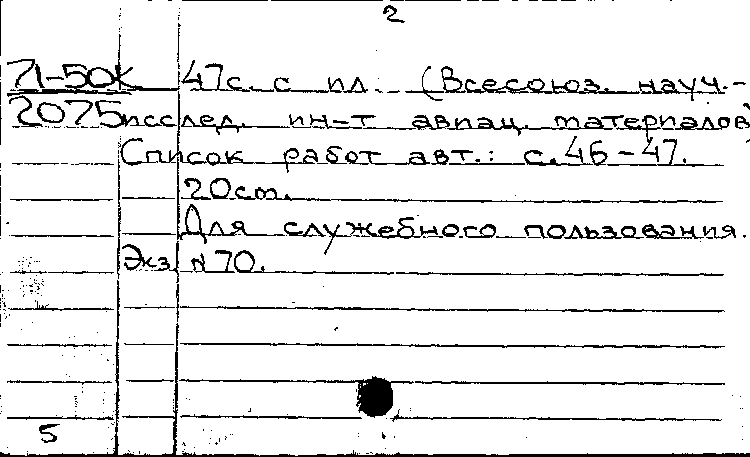 2
71-50K 47с. с ил. (Всесоюз. науч.-
2075 исслед. ин-т авиац. материалов)
Список работ авт.: с.46-47.
20см.
Для служебного пользования.
Экз. N70.
5